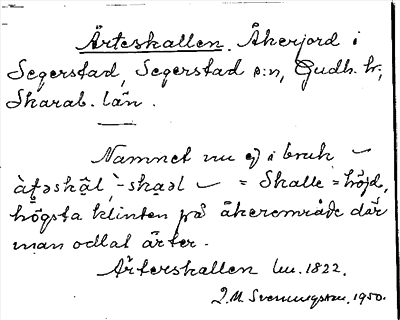 Ärteskallen. Åkerjord i
Segerstad, Segerstad s:n, Gudh. hr,
Skarab. län.
Namnet nu ej i bruk
= Skalle = höjd,
högsta klinten på åkerområde där
man odlat ärter.
Ärterskallen Lm. 1822.
J. M. Svenningson. 1950.